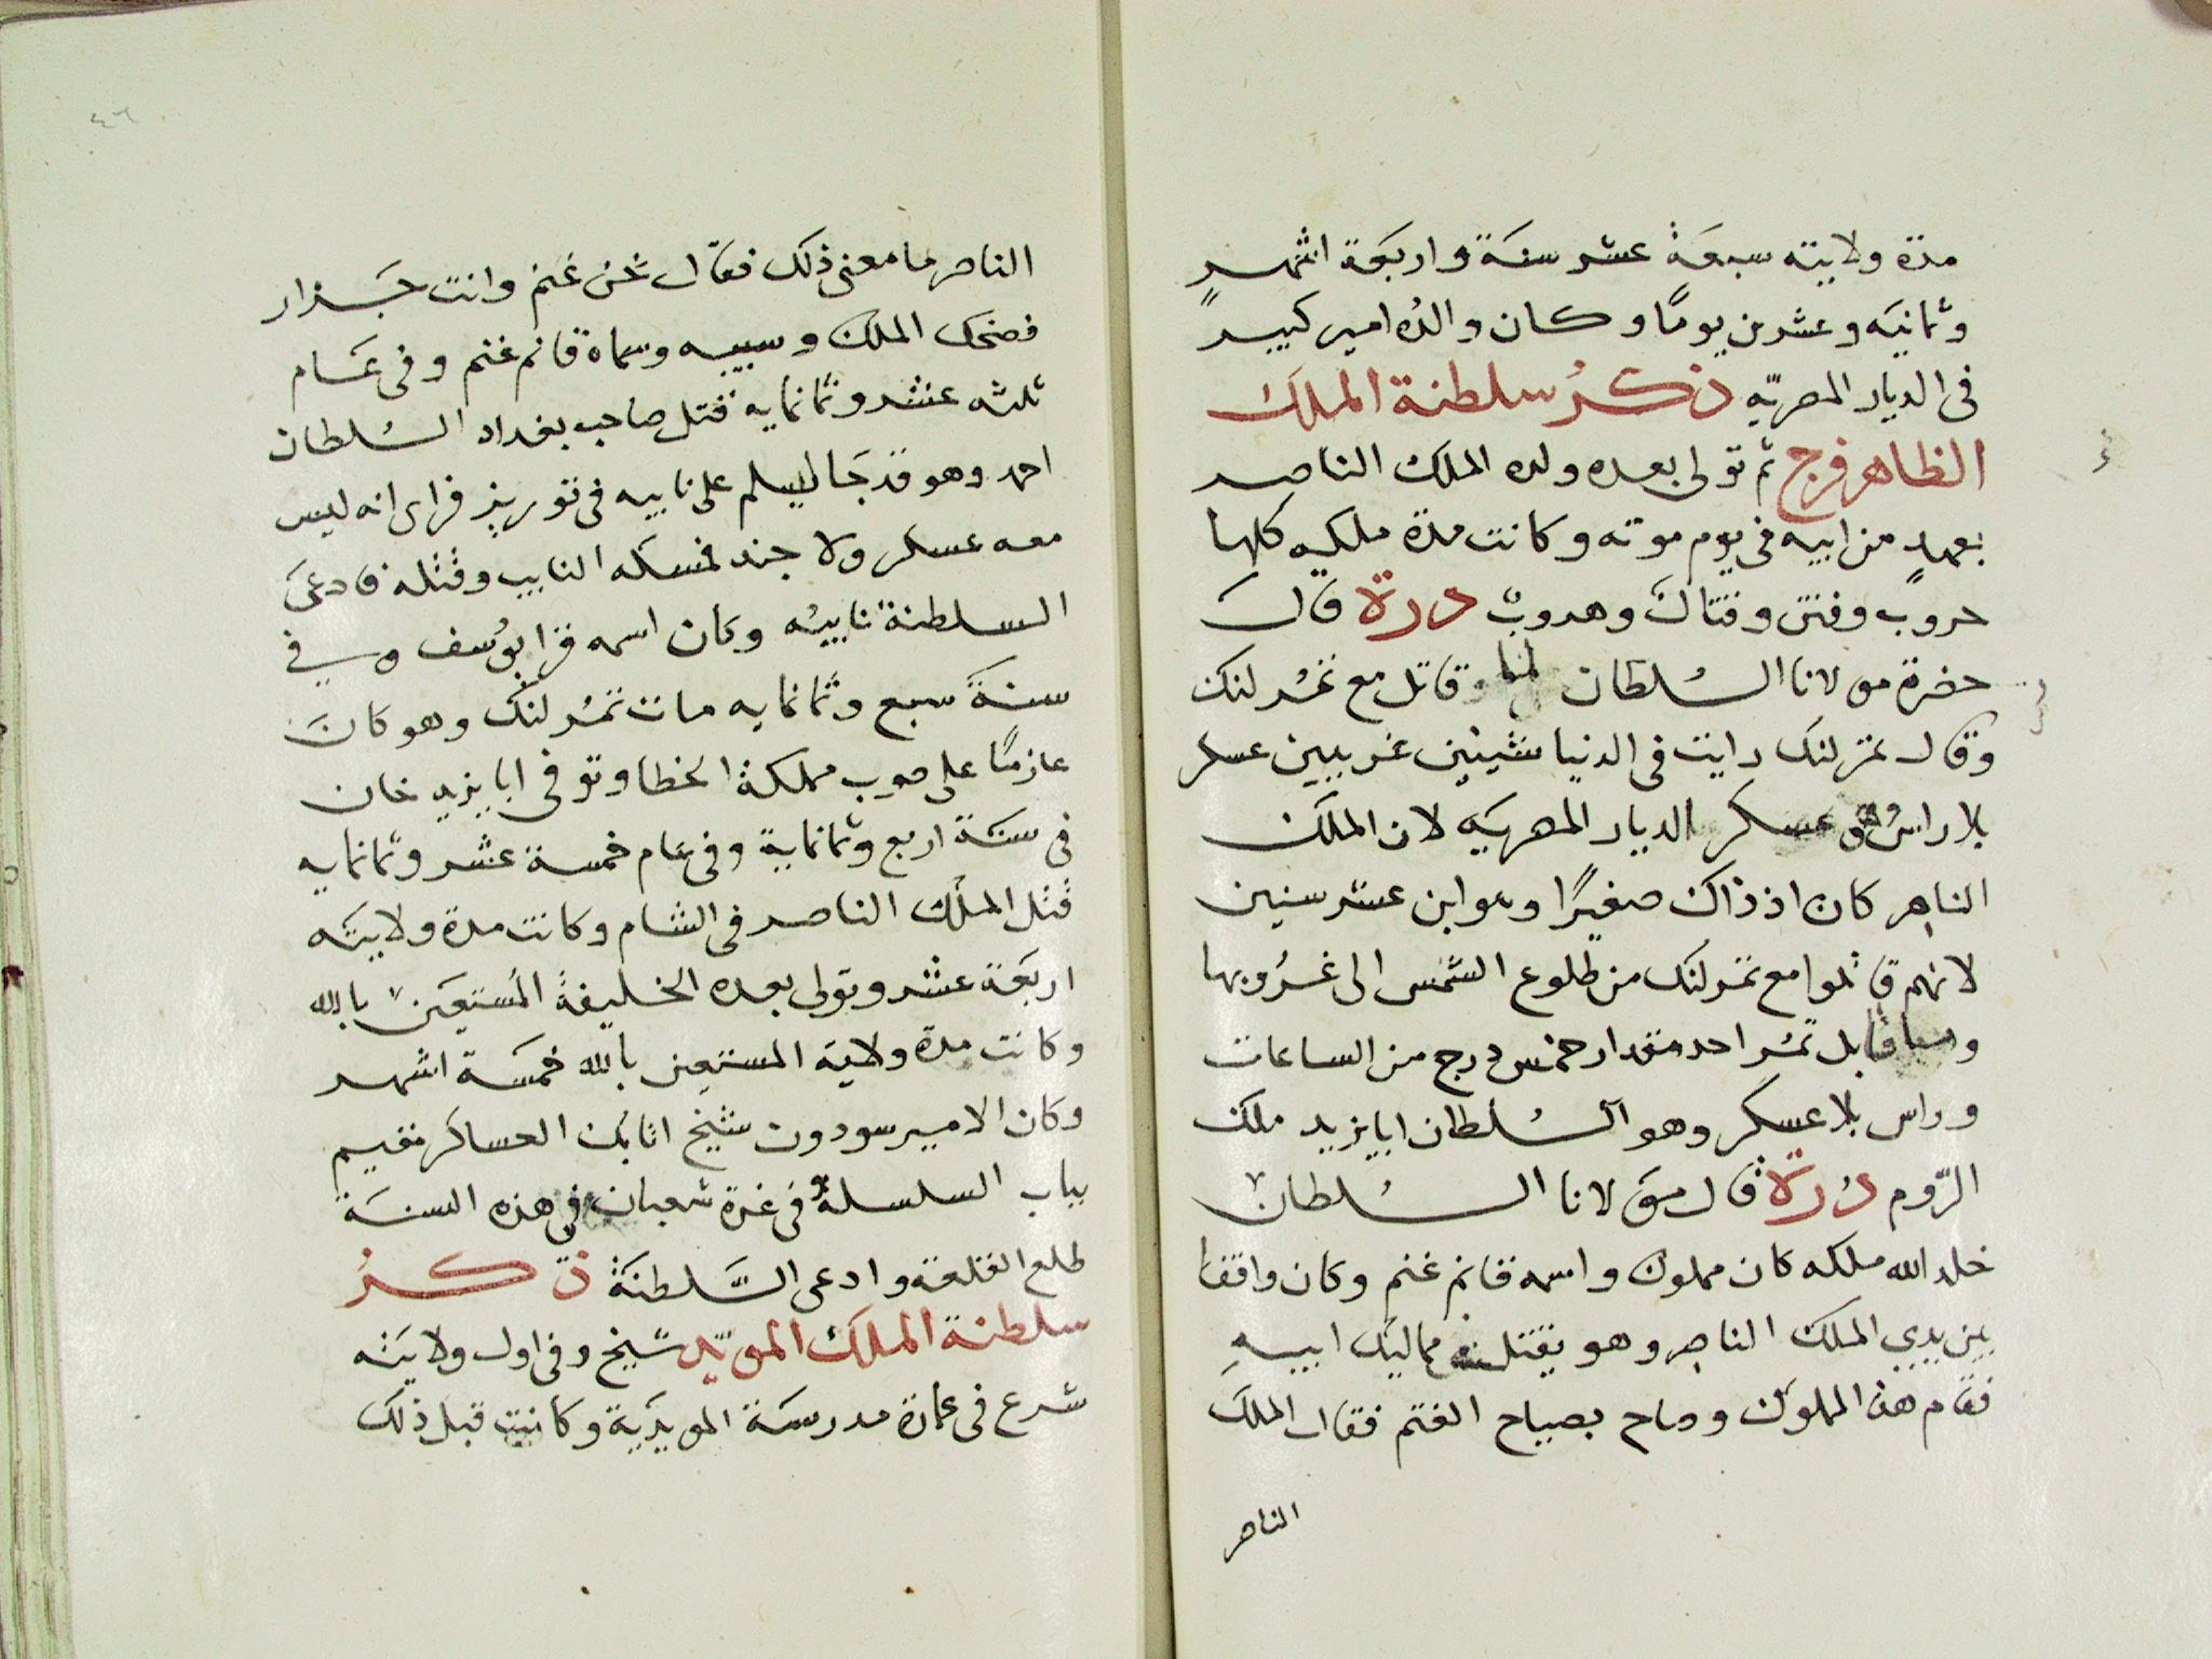 مدة ولايته سبعة عشر سنة و اربعة اشهر
وثمانيه وعشرين يومًا و كان والده امير كبير
فى الديار المصريّه ذكر سلطنة الملك
الظاهر فرج ثم تولى بعده ولده الملك الناصر
بعهدٍ من ابيه فى يوم موته وكانت مدة ملكيه كلها
حروب وفتن وقتال وهروب درة قال
حضرة مولانا السُلطان لما وقاتل مع تمُرلنك
وقال تمرلنك رايت فى الدنيا شيئين غريبين عسكر
بلا راس وهو عسكر الديار المصريه لان الملك
الناصر كان اذ ذاك صغيرًا وهو ابن عشر سنين
لانهم قاتلوا مع تمرلنك من طلوع الشمس الى غروبها
وما قابل تمُر احد مقدار خمس درج من الساعات
وراس بلا عسكر وهو السُلطان ابايزيد ملك
الرّوم دُرة قال مولانا السُلطان
خلد الله ملكه كان مملوك واسمه قانم غنم وكان واقفا
بين يدي الملك الناصر وهو يقتل مماليك ابيهِ
فقام هذا المملوك وصاح بصياح الغنم فقال الملك
الناصر
٤٦
الناصر ما معنى ذلك فقال نحن غنم وانت جزار
فضحك الملك وسيبه وسماه قانم غنم وفى عام
ثلثه عشر وثمانمايه قتل صاحب بغداد السُلطان
احمد وهو قد جا ليسلم على نايبه فى توريز فراى انه ليس
معه عسكر ولا جند فمسكه النايب وقتله فادعى
السلطنة نايبُه وكان اسمه قرا يوُسف وفي
سنة سبع وثمانمايه مات تمُرلنك وهو كان
عازمًا على صوب مملكة الخطا وتوفى ابايزيد خان
فى سنة اربع وثمانماية وفى عام خمسة عشر وثمانمايه
قتل الملك الناصر فى الشام وكانت مدة ولايته
اربعة عشر وتولى بعده الخليفة المُستعين بالله
وكانت مدة ولاية المستعين بالله خمسة اشهر
وكان الامير سودون شيخ اتابك العساكر مقيم
بباب السلسلة فى غرة شعبان فى هذه السنة
طلع القلعة وادعى السَّلطنة ذكرُ
سلطنة الملك المويّد شيخ وفى اول ولايته
شرع فى عمارة مدرسة المويدية وكانت قبل ذلك